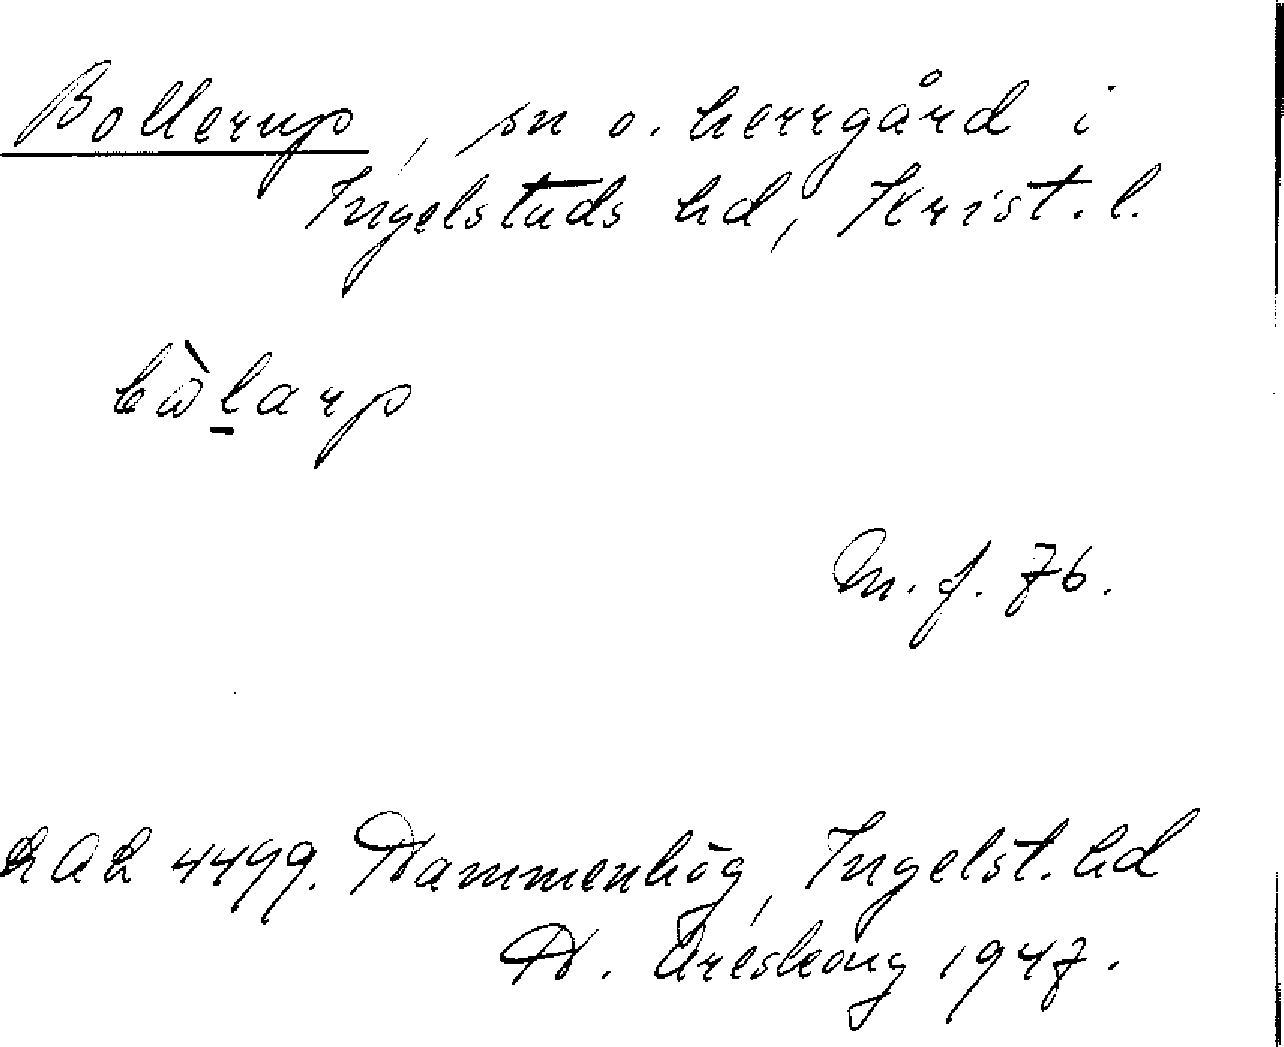 Bollerup, sn o. herrgård i
Ingelstads hd, Krist. l.
bàlarp
M. f. 76.
LAL 4499. Hammenhög, Ingelst. hd
H. Areskoug 1947.